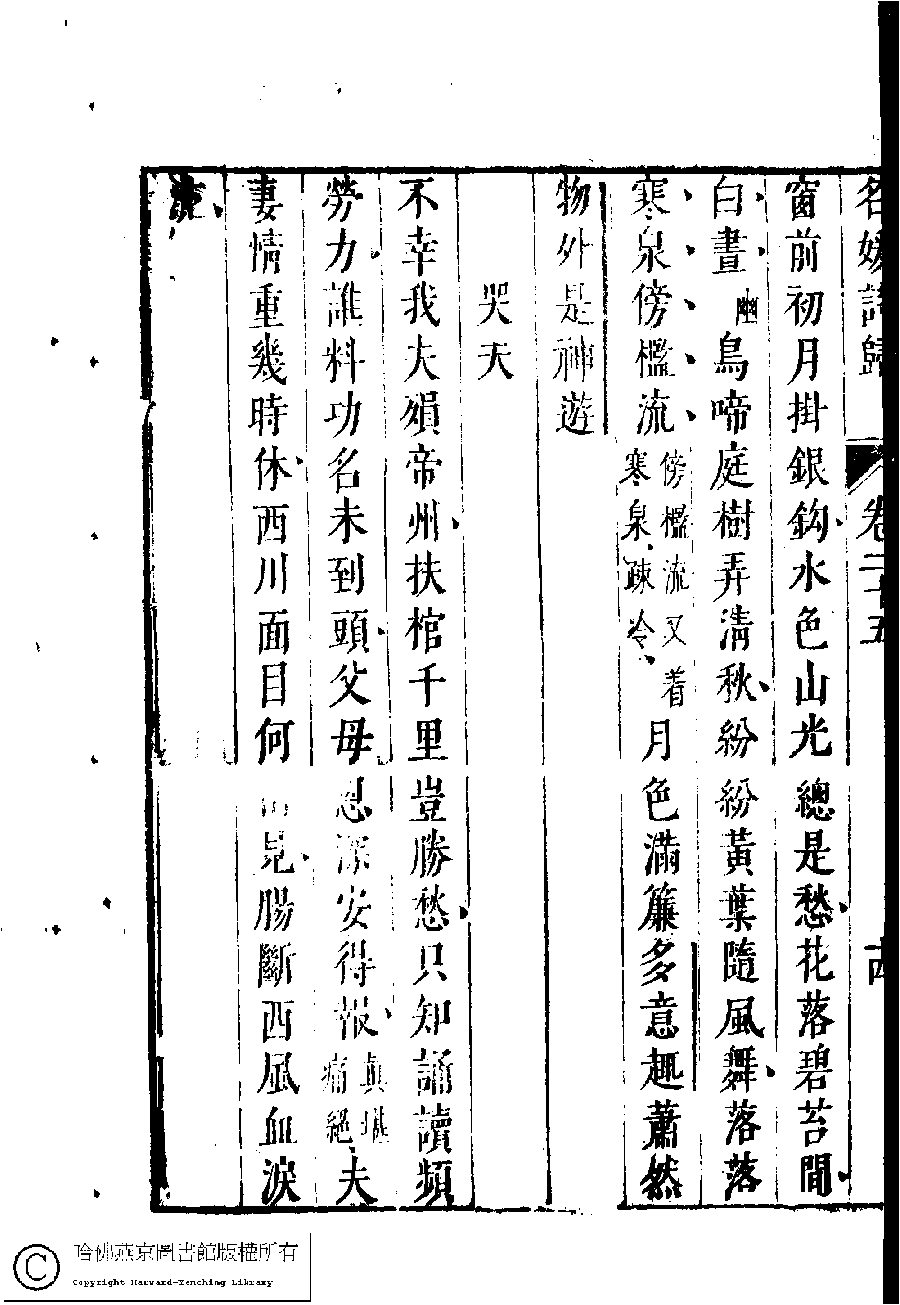 名媛詩歸 卷二十五 十四
窗前初月掛銀鈎水色山光總是愁花落碧苔間
白晝幽鳥啼庭樹弄清秋紛紛黃葉隨風舞落落
寒泉傍檻流傍檻流又着寒泉疎冷月色滿簾多意趣蕭然
物外是神遊
哭夫
不幸我夫殞帝州扶棺千里豈勝愁只知誦讀頻
勞力誰料功名未到頭父母恩深安得報真堪痛絕夫
妻情重幾時休西川面目何由見腸斷西風血淚
流
哈佛燕京圖書館版權所有
Copyright Harvard-Yenching Library